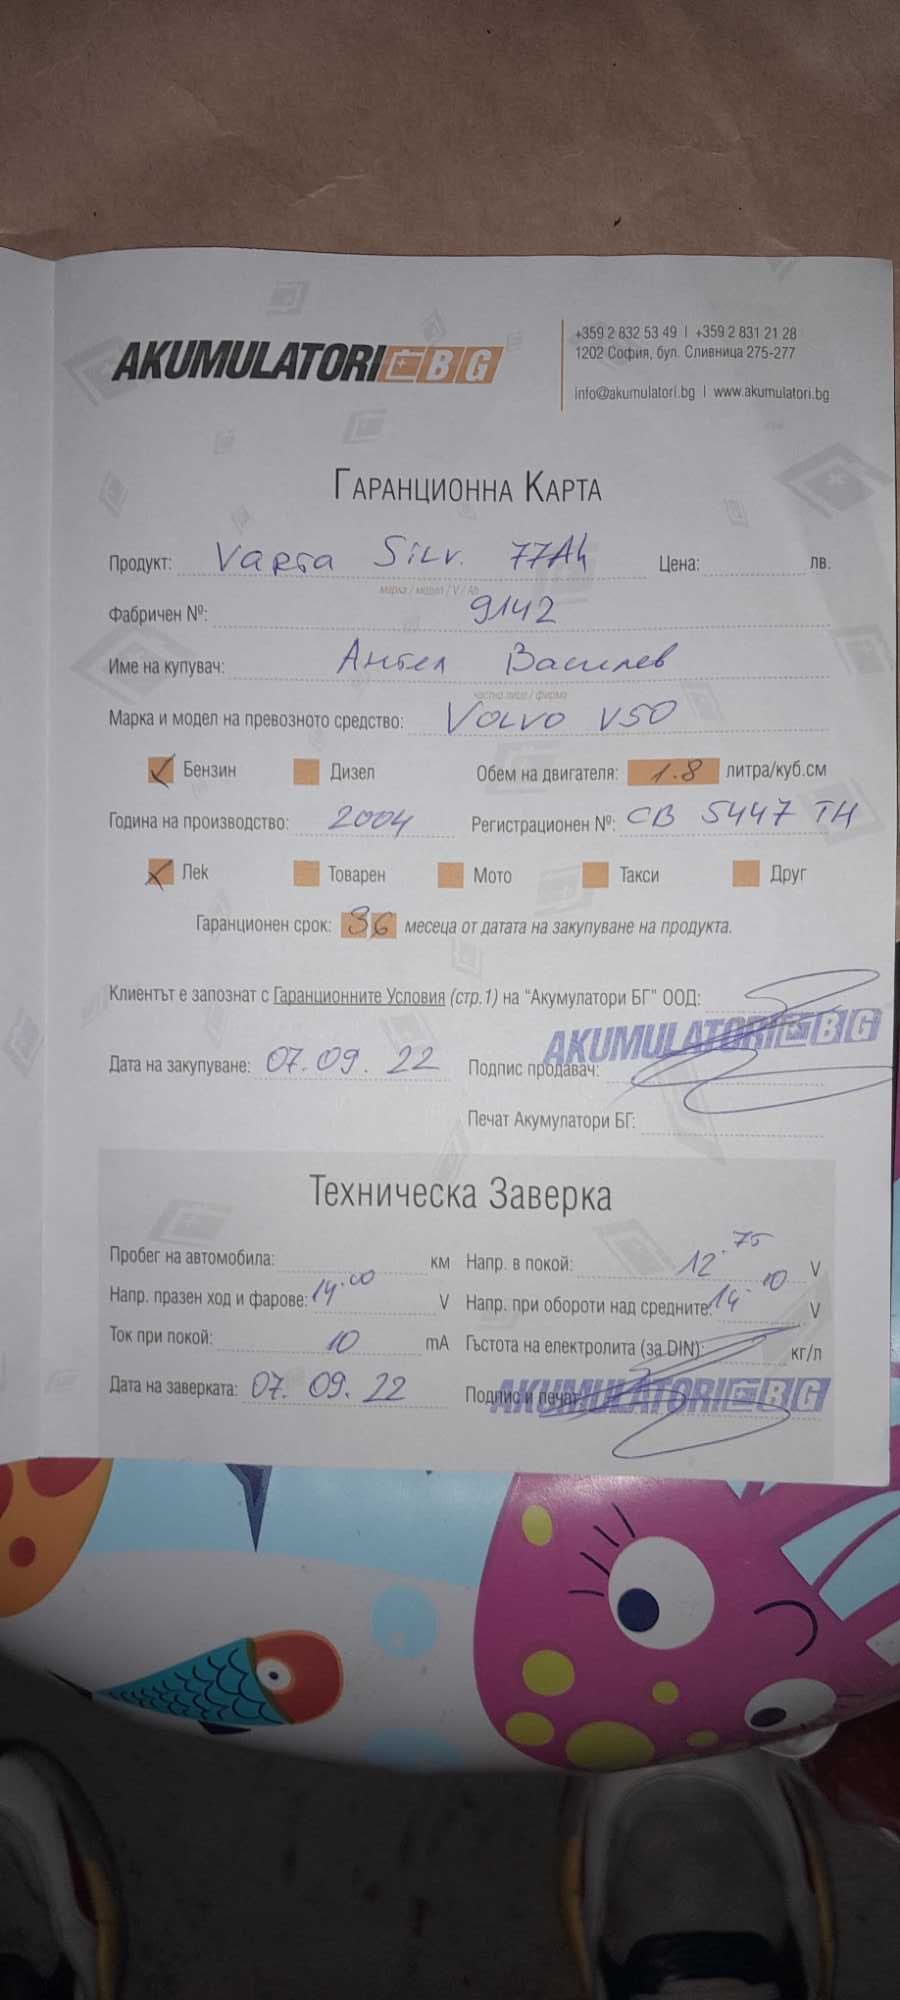 AKUMULATORI BG
+359 2 832 53 49 | +359 2 831 21 28
1202 София, бул. Сливница 275-277
info@akumulatori.bg | www.akumulatori.bg
Гаранционна Карта
Продукт: Varta Silv. 77Ah Цена: лв.
марка / модел / V / Ah
Фабричен №: 9142
Име на купувач: Ангел Василев
частно лице / фирма
Марка и модел на превозното средство: Volvo V50
Бензин Дизел Обем на двигателя: 1.8 литра/куб.см
Година на производство: 2004 Регистрационен №: СВ 5447 ТН
Лек Товарен Мото Такси Друг
Гаранционен срок: 36 месеца от датата на закупуване на продукта.
Клиентът е запознат с Гаранционните Условия (стр.1) на "Акумулатори БГ" ООД:
AKUMULATORI BG
Дата на закупуване: 07.09.22 Подпис продавач:
Печат Акумулатори БГ:
Техническа Заверка
Пробег на автомобила: км Напр. в покой: 12.75 V
Напр. празен ход и фарове: 14.00 V Напр. при обороти над средните: 14.10 V
Ток при покой: 10 mA Гъстота на електролита (за DIN): кг/л
Дата на заверката: 07.09.22 Подпис и печат:
AKUMULATORI BG